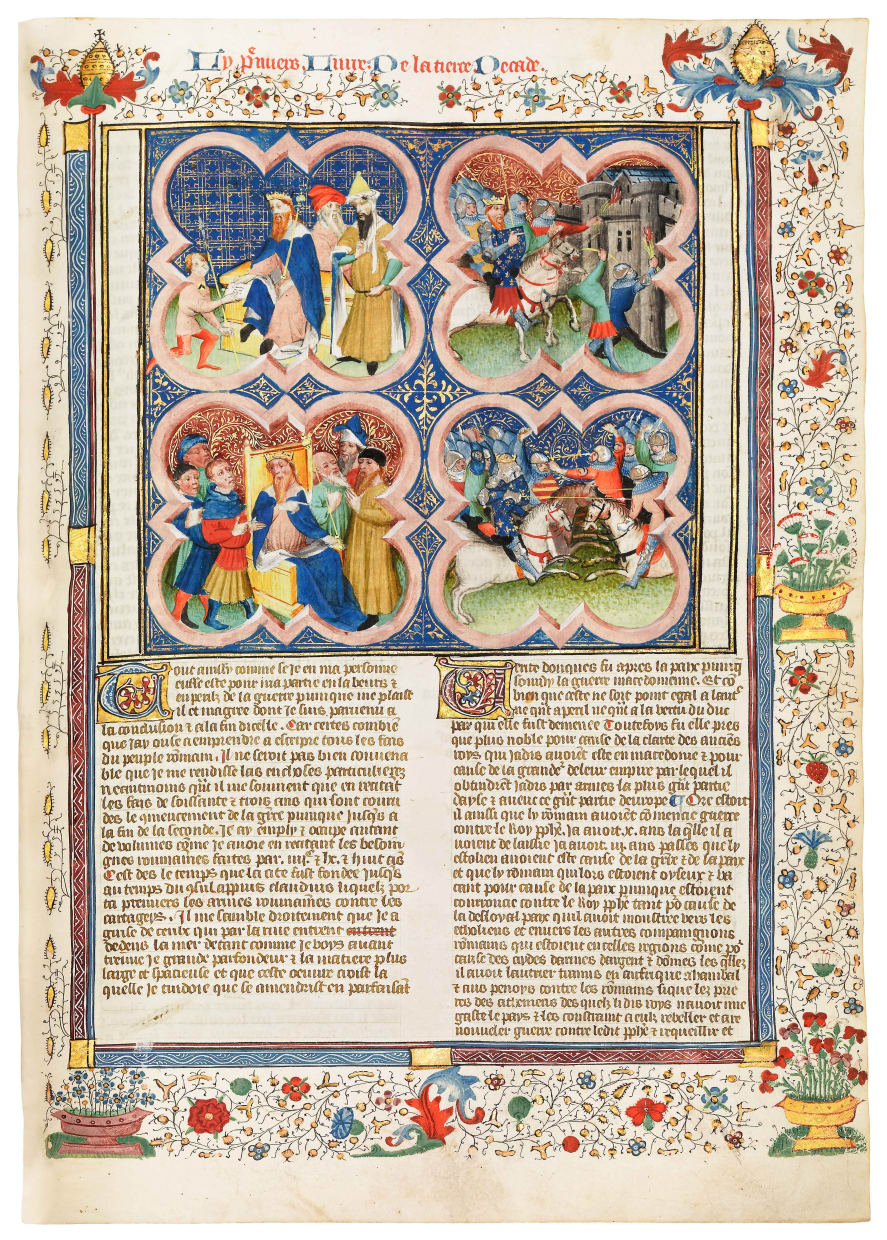 Ly p̃miers Liure De la tierce Decade.
Tout ainssy comme se Je en ma personne
eusse este pour ma partie en la beurs ⁊
ou peril de la guerre punique me plaist
il et magree dont Je suis paruenu a
la conclusion ⁊ a la fin dicelle. Car certes combiẽ
que Jay ose a emprendre a escripre tous les fais
du peuple rõmain. Il ne seroit pas bien conuena
ble que Je me rendisse las en choses particulieres
neantmoins qñt il me souuient que en recitãt
les fais de soissante ⁊ trois ans qui sont couru
des le cõmencement de la g̃re punique Jusq̃s a
la fin de la seconde. Je ay emply ⁊ ocupe autant
de volumes cõme Je auoie en recitant les besoin
gnes roumaines faites par. iiijᶜ ⁊ lx. ⁊ huit ãs
Cest des le temps que la cite fust fondee Jusq̃s
au temps du cõsul appius claudius liquelz por
ta premiers les armes roumaines contre les
cartageñs. Il me samble droitement que Je a
guise de ceulx qui par la riue entrent entrent
dedens la mer. de tant comme Je voys auant
treuue Je grande parfondeur ⁊ la matiere plus
large et spacieuse et que ceste oeuure croist la
quelle Je cuidoie que se amendrist en parfaisãt
Uente donques fu apres la paix puniq̃
sonuidy la guerre macedonienne. Et cõ
bien que ceste ne soit point egal a lautʳ
ne qñt a peril ne qñt a la vertu du duc
par qui elle fust demenee Toutefoys fu elle pres
que plus noble pour cause de la clarte des anciẽs
roys qui Jadis auoiẽt este en macedonie ⁊ pour
cause de la grandeʳ de leur empire par lequel il
obtindrẽt Jadis par armes la plus gñt partie
dayse ⁊ auecc ce gñt partie deurope ¶ Orẽ estoit
il ainssi que ly romain auoiẽt cõmencie guerre
contre le Roy pph̃e. Ja auoit .x. ans la q̃lle il a
uoient de laissie Ja auoit .iij. ans passes que ly
etholien auoient este cause de la g̃re ⁊ de la paix
et que ly rõmain qui lors estoient oyseux ⁊ va
cant pour cause de la paix punique estoient
courroucie contre le Roy pph̃e tant põ cause de
la desloyal paix quil auoit moustree vers les
etholiens et enuers les autres compaingnons
rõmains qui estoient en celles regions cõme poʳ
cause des aydes darmes dargent ⁊ dõmes les q̃lles
il auoit lautrier tramis en auffrique a hanibal
⁊ aus penoys contre les rõmains si que les prie
res des atheniens des quelz li dis roys auoit tout
gaste le pays ⁊ les constraint a eulx rebeller et a re
nouueler guerre contre ledit pph̃e ⁊ requeillir et